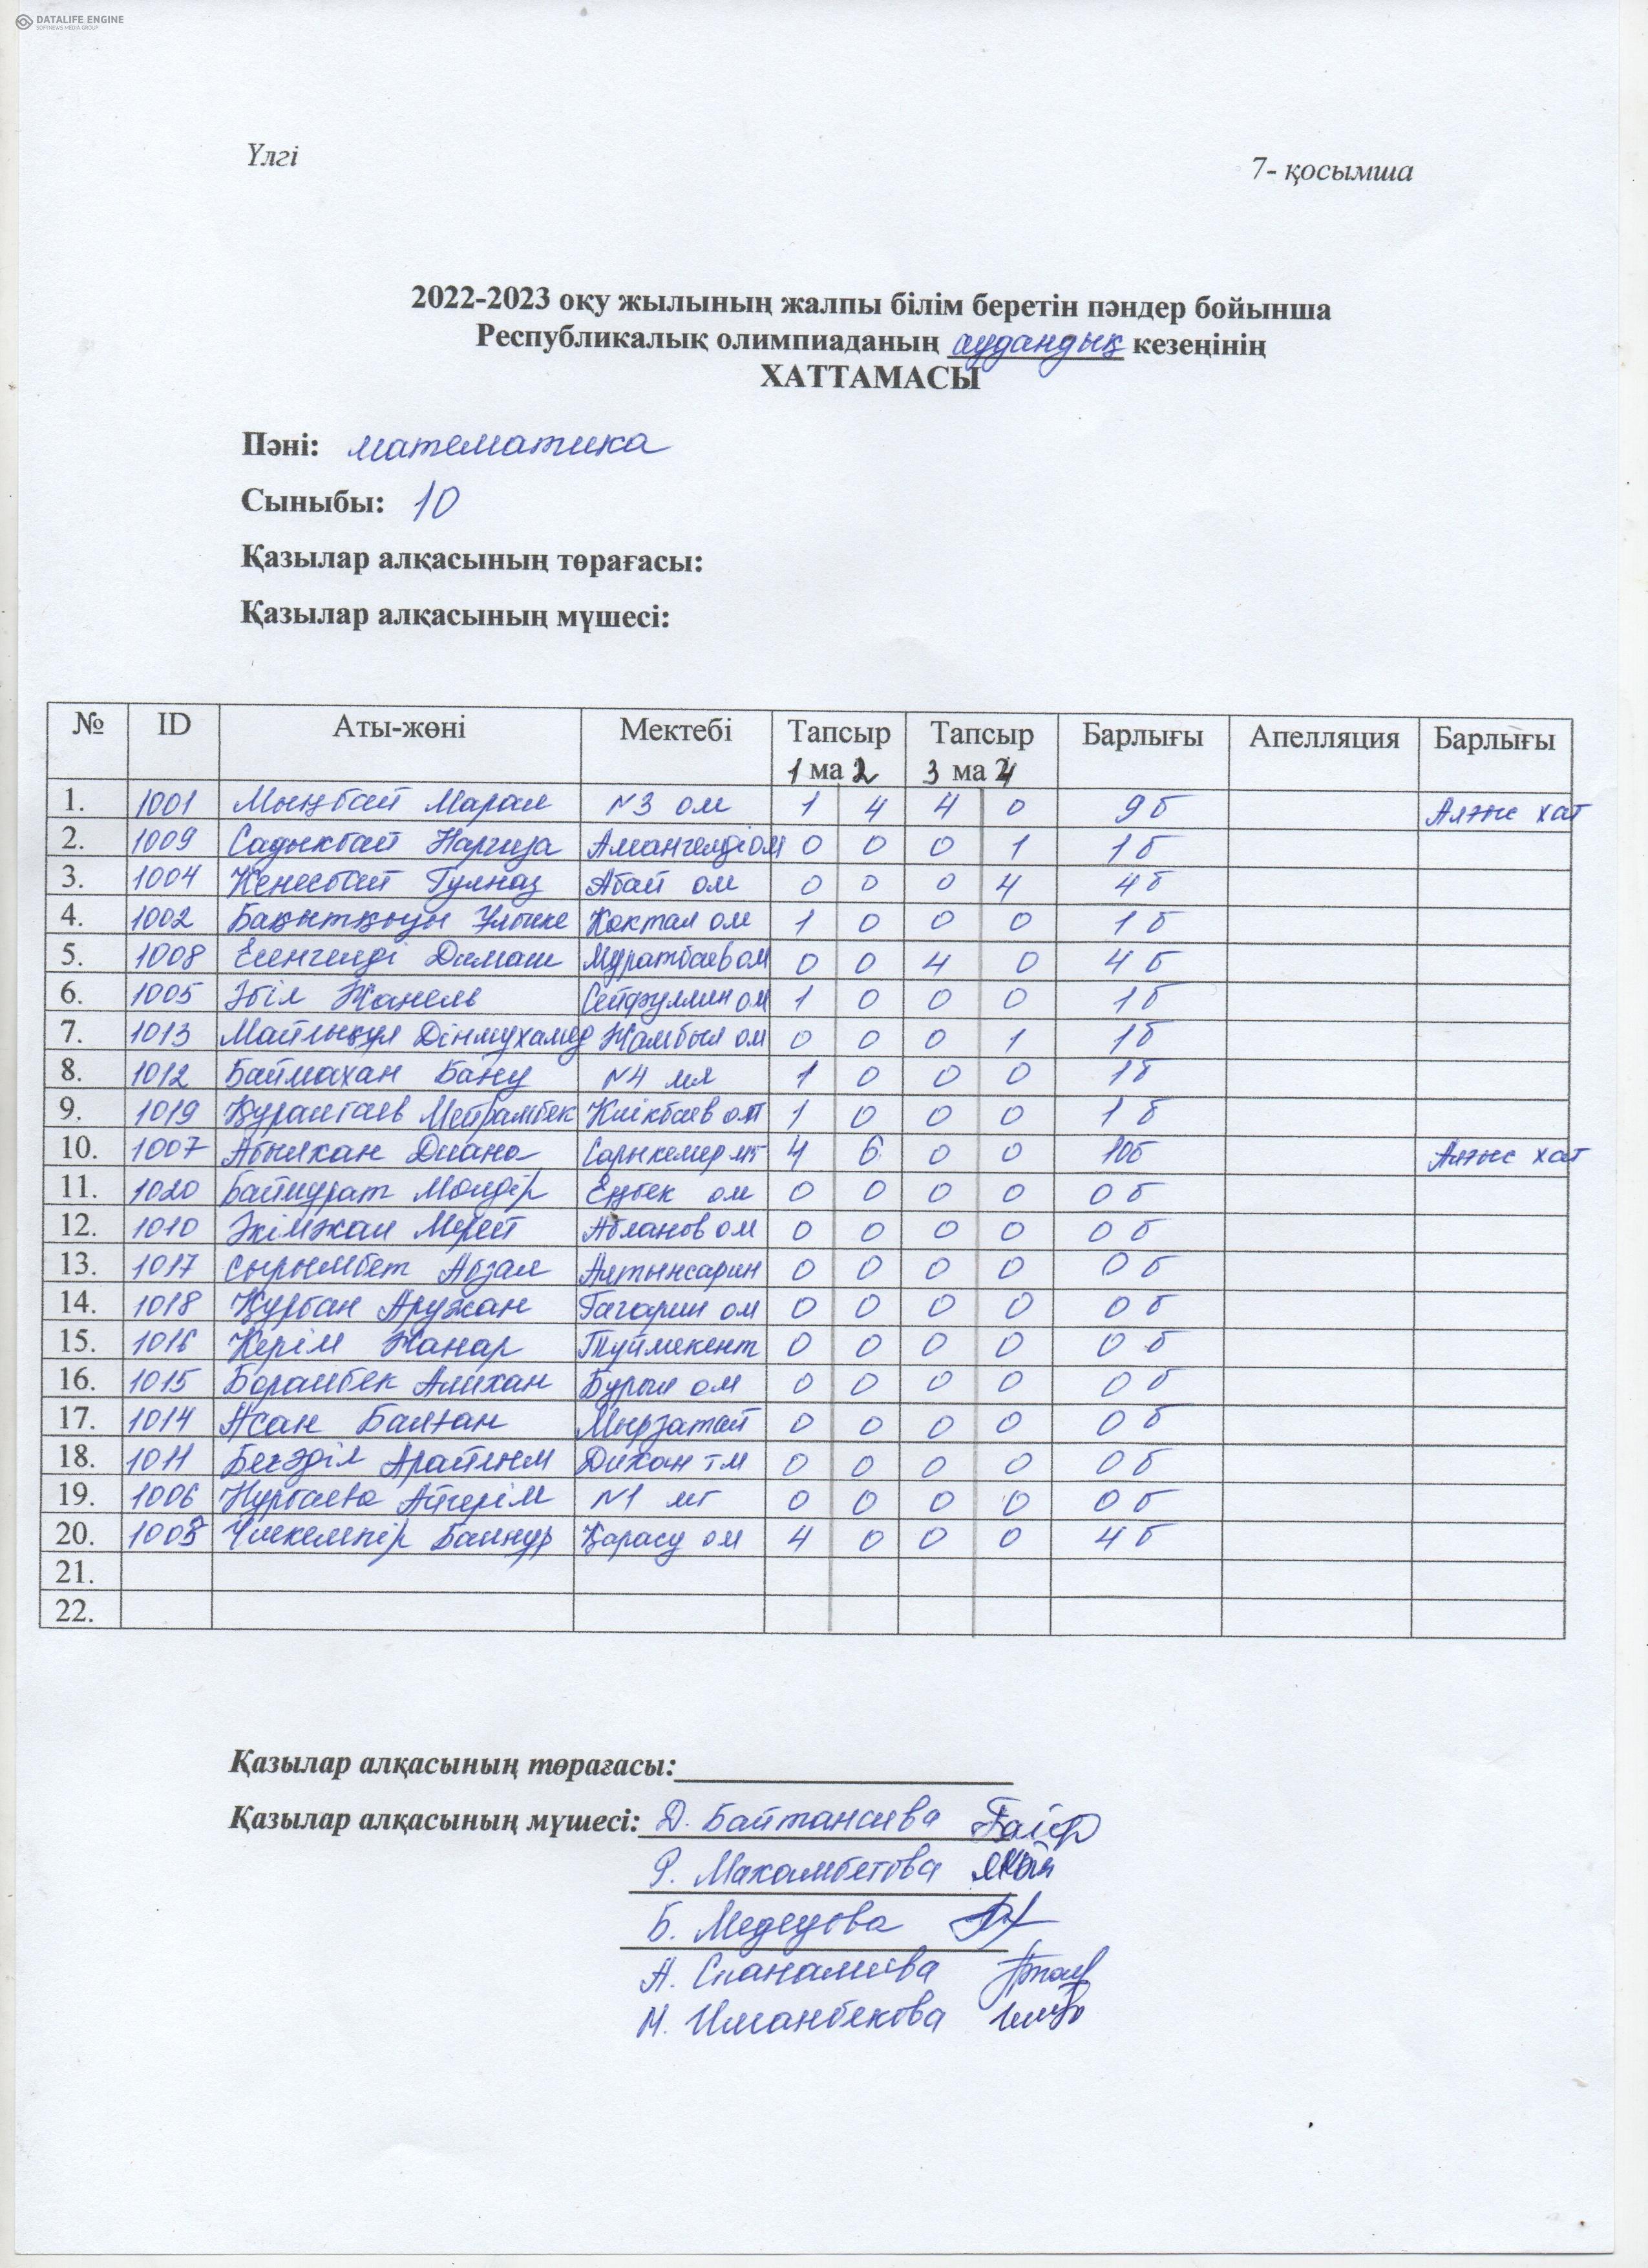 DATALIFE ENGINE
SOFTNEWS MEDIA GROUP
Үлгі
7- қосымша
2022-2023 оқу жылының жалпы білім беретін пәндер бойынша
Республикалық олимпиаданың аудандық кезеңінің
ХАТТАМАСЫ
Пәні: математика
Сыныбы: 10
Қазылар алқасының төрағасы:
Қазылар алқасының мүшесі:
№ ID Аты-жөні Мектебі Тапсыр Тапсыр Барлығы Апелляция Барлығы
1 ма 2 3 ма 4
1. 1001 Мыңбай Марал №3 ом 1 4 4 0 9 б Алғыс хат
2. 1009 Садыкбай Наргиза Амангелді ом 0 0 0 1 1 б
3. 1004 Кенесбай Гулназ Абай ом 0 0 0 4 4 б
4. 1002 Бақытқызы Ұлпике Коктал ом 1 0 0 0 1 б
5. 1008 Есенгелді Димаш Муратбаев ом 0 0 4 0 4 б
6. 1005 Әбіл Жанель Сейфуллин ом 1 0 0 0 1 б
7. 1013 Майлықұл Дінмухамед Жамбыл ом 0 0 0 1 1 б
8. 1012 Баймахан Бану №4 мл 1 0 0 0 1 б
9. 1019 Құралбаев Мейрамбек Киікбаев ом 1 0 0 0 1 б
10. 1007 Абылхан Диана Сарыкемер мг 4 6 0 0 10 б Алғыс хат
11. 1020 Баймурат Молдір Еңбек ом 0 0 0 0 0 б
12. 1010 Әкімжан Мерей Абланов ом 0 0 0 0 0 б
13. 1017 Сырымбет Абзал Алтынсарин 0 0 0 0 0 б
14. 1018 Құрбан Аружан Гагарин ом 0 0 0 0 0 б
15. 1016 Керім Жанар Туймекент 0 0 0 0 0 б
16. 1015 Боранбек Алихан Бурыл ом 0 0 0 0 0 б
17. 1014 Асан Балжан Мырзатай 0 0 0 0 0 б
18. 1011 Бегәділ Арайлым Дихан тм 0 0 0 0 0 б
19. 1006 Нурбаева Айгерім №1 мг 0 0 0 0 0 б
20. Баннур Қарасу ом 4 0 0 0 4 б
21.
22.
Қазылар алқасының төрағасы:
Қазылар алқасының мүшесі: Д. Байтанаева
Р. Махамбетова
Б. Медеуова
А. Спаналиева
М. Иманбекова